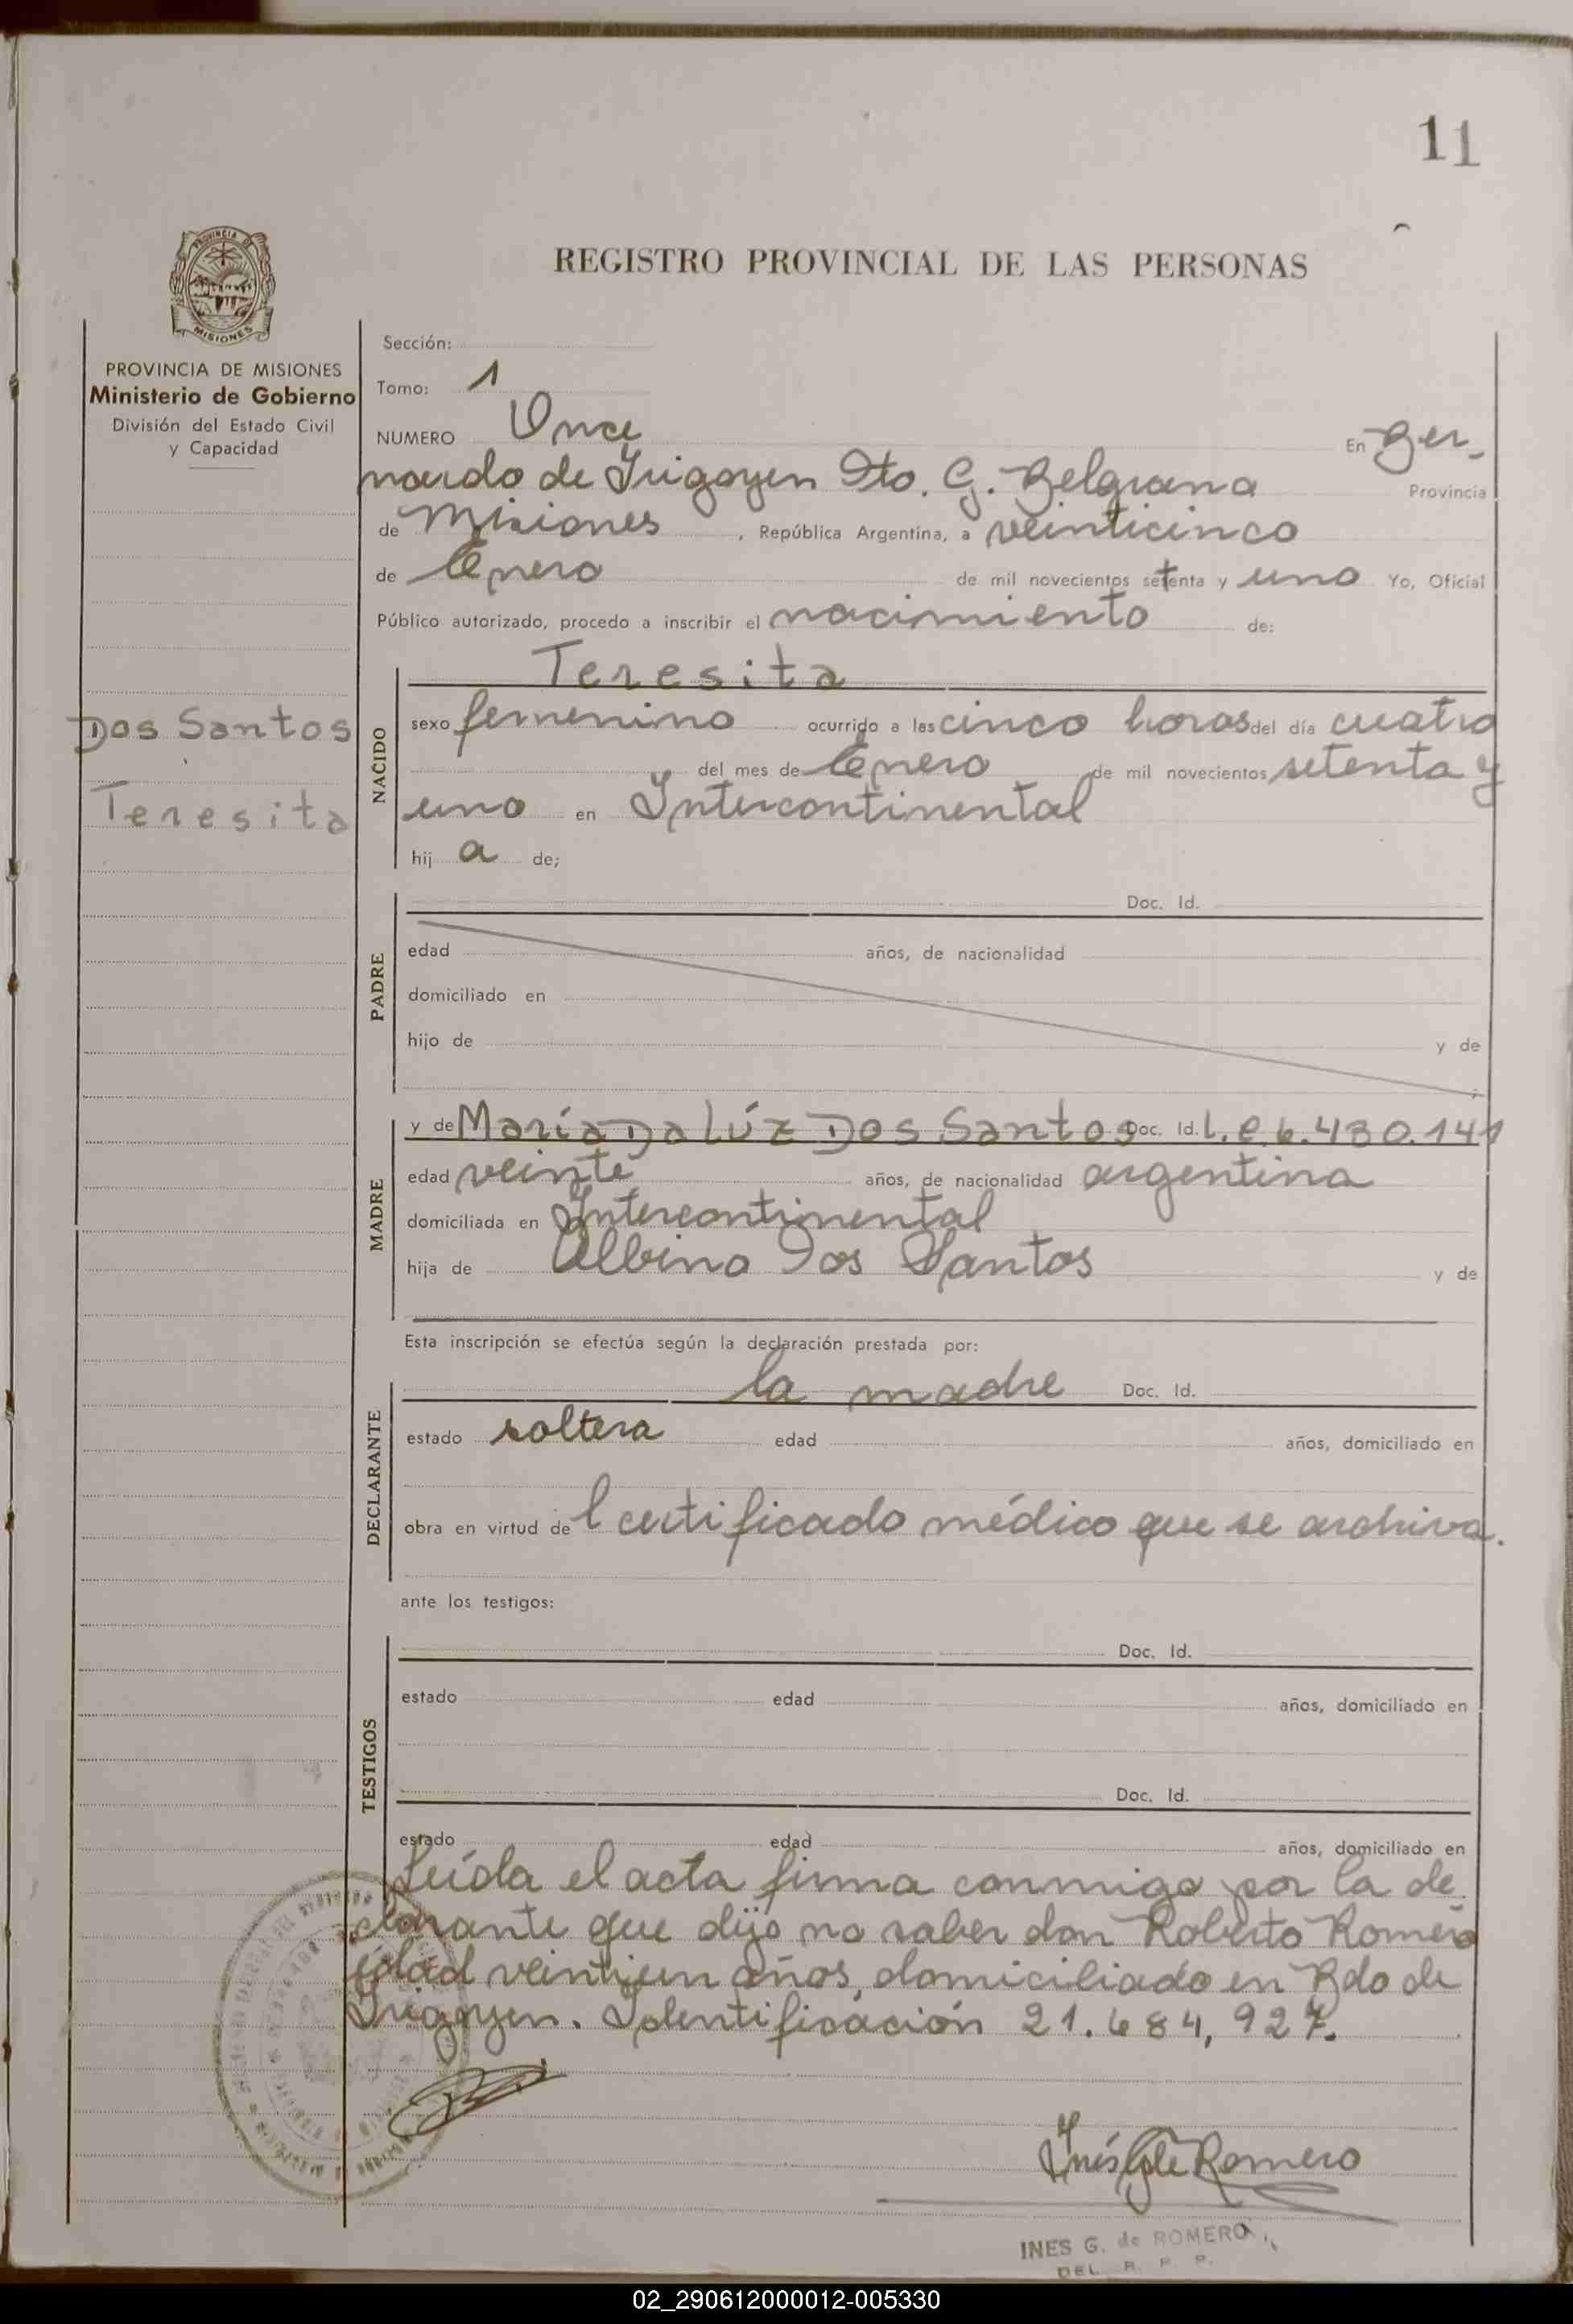 11
REGISTRO PROVINCIAL DE LAS PERSONAS
PROVINCIA DE
MISIONES
PROVINCIA DE MISIONES
Ministerio de Gobierno
División del Estado Civil
y Capacidad
Dos Santos
Teresita
Sección:
Tomo: 1
NUMERO Once En Ber-
nardo de Irigoyen Dto. G. Belgrano Provincia
de Misiones, República Argentina, a veinticinco
de Enero de mil novecientos setenta y uno Yo, Oficial
Público autorizado, procedo a inscribir el nacimiento de:
NACIDO
Teresita
sexo femenino ocurrido a las cinco horas del día cuatro
del mes de Enero de mil novecientos setenta y
uno en Intercontinental
hij a de;
PADRE
Doc. Id.
edad años, de nacionalidad
domiciliado en
hijo de y de
MADRE
y de María Da Lúz Dos Santos Doc. Id. L.C 6.430.141
edad veinte años, de nacionalidad argentina
domiciliada en Intercontinental
hija de Albino Dos Santos y de
Esta inscripción se efectúa según la declaración prestada por:
DECLARANTE
la madre Doc. Id.
estado soltera edad años, domiciliado en
obra en virtud de l certificado médico que se archiva.
ante los testigos:
TESTIGOS
Doc. Id.
estado edad años, domiciliado en
Doc. Id.
estado edad años, domiciliado en
Leída el acta firma conmigo por la de
clarante que dijo no saber don Roberto Romero
edad veintiun años, domiciliado en Bdo de
Irigoyen. Identificación 21.684,927.
Inés G de Romero
INES G. de ROMERO
DEL R. P. P.
02_290612000012-005330